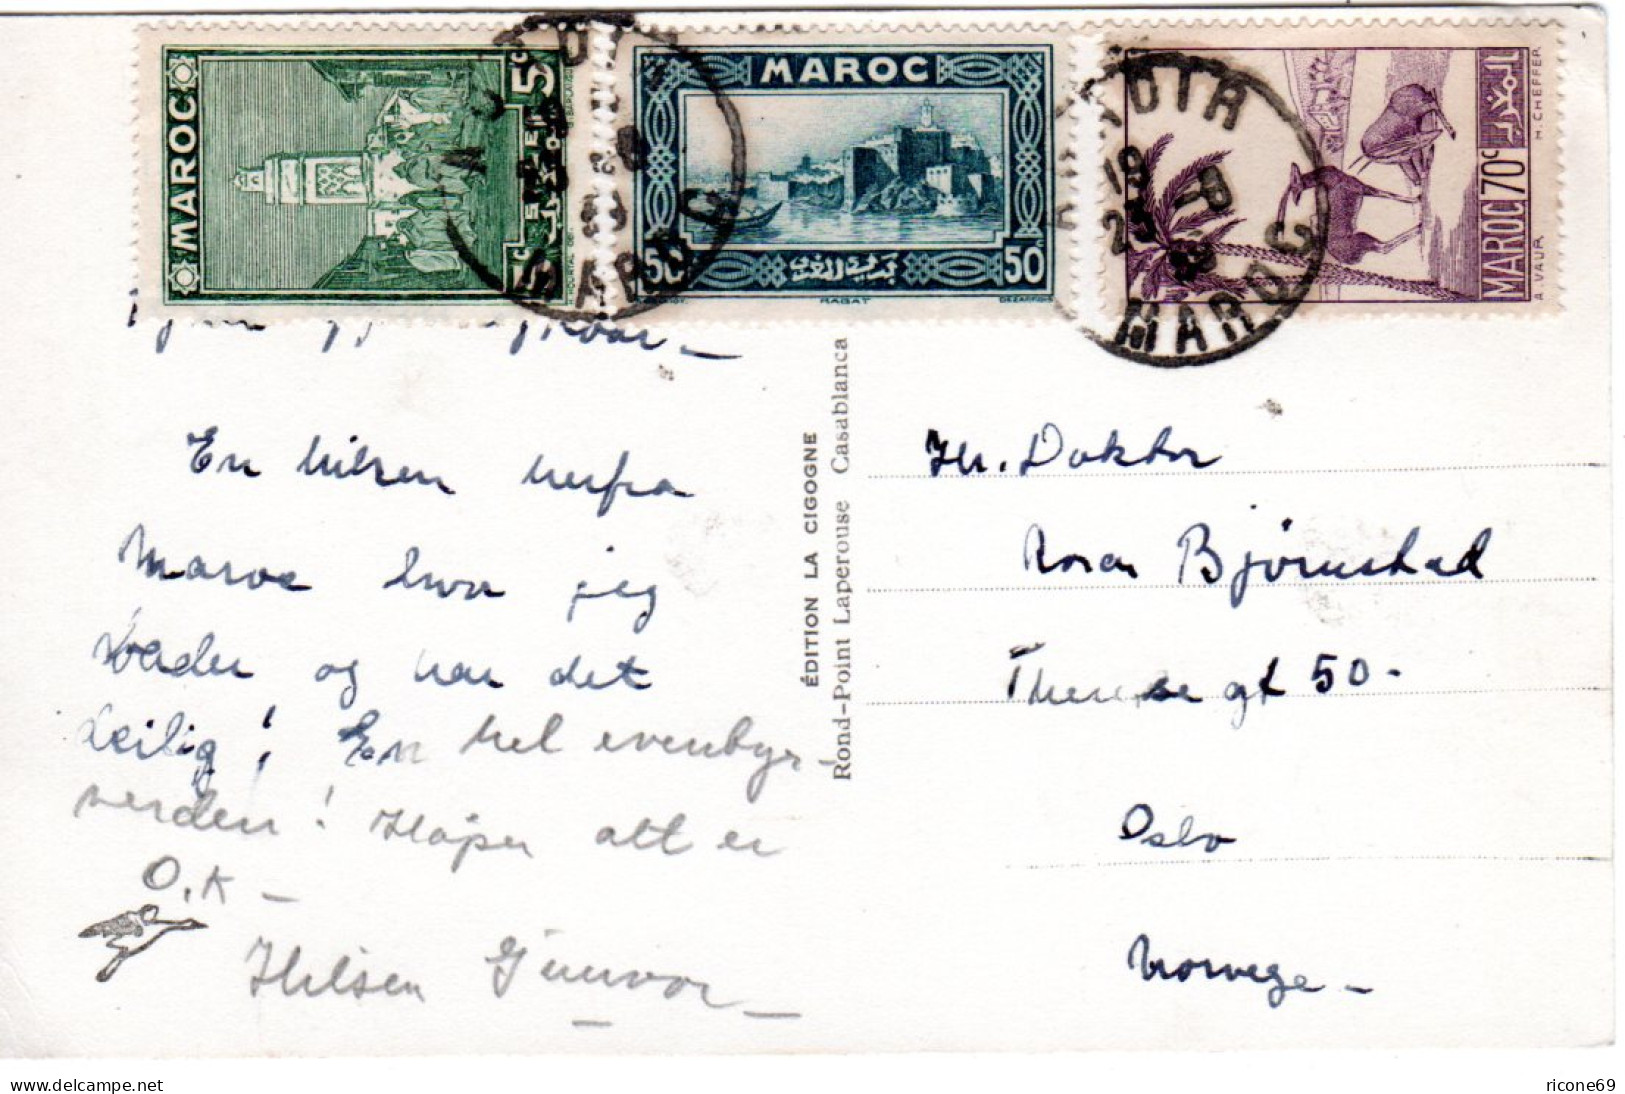 MAROC
5c
5c
POSTES
MAROC
50
50
RABAT
المغرب
MAROC 70c
H. CHEFFER
A. VAUR
AGADIR
MAROC
AGADIR
19
MAROC
En hilsen herfra
Maroc hvor jeg
bader og har det
deilig! En hel eventyr-
verden! Håper alt er
O.K –
Hilsen Gunvor –
ÉDITION LA CIGOGNE
Rond-Point Laperouse Casablanca
Hr. Doktor
Roar Bjørnstad
Therese gt 50-
Oslo
Norvege –
delcampe.net
ricone69